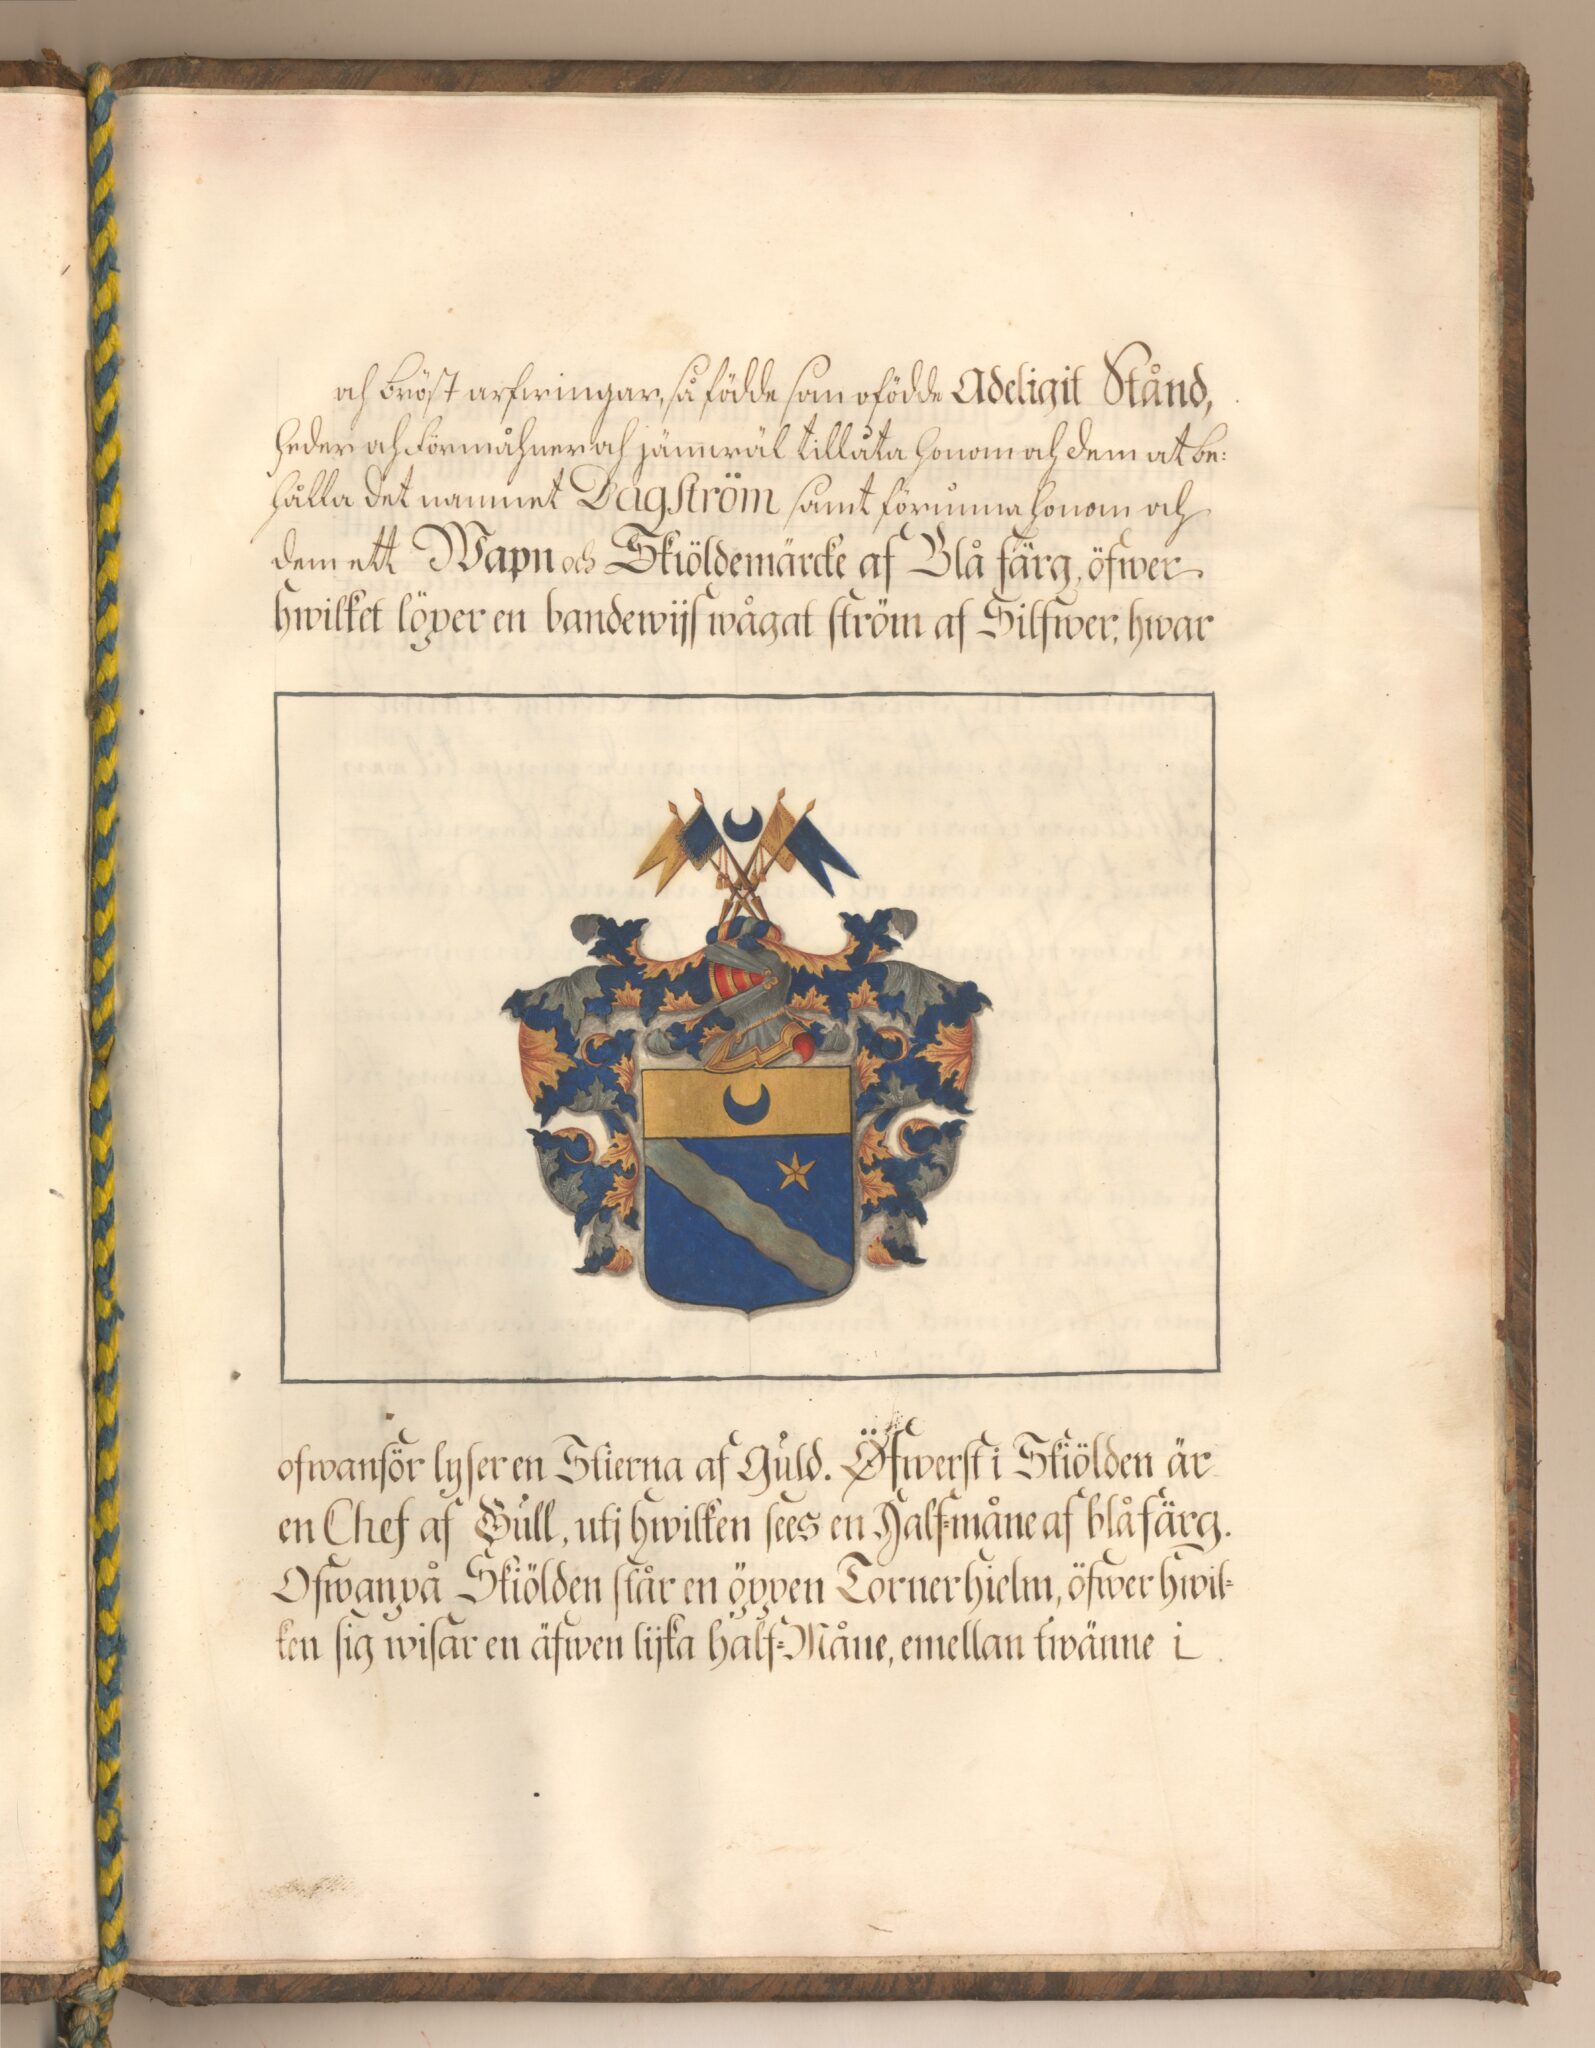 och bröst arfwingar, så födde som ofödde Adeligit Stånd,
heder och förmåhner och jämwäl tillåta honom och dem at be:
hålla det namnet Dagström samt förunna honom och
dem ett Wapn och Skiöldemärcke af Blå färg, öfwer
hwilket löper en bandewijs wågat ström af Silfwer, hwar
ofwanför lyser en Stierna af Guld. Öfwerst i Skiölden är
en Chef af Gull, utj hwilken sees en Half=måne af blå färg.
Ofwanpå Skiölden står en öppen Tornerhielm, öfwer hwil=
ken sig wisar en äfwen lijka half=Måne, emellan twänne i